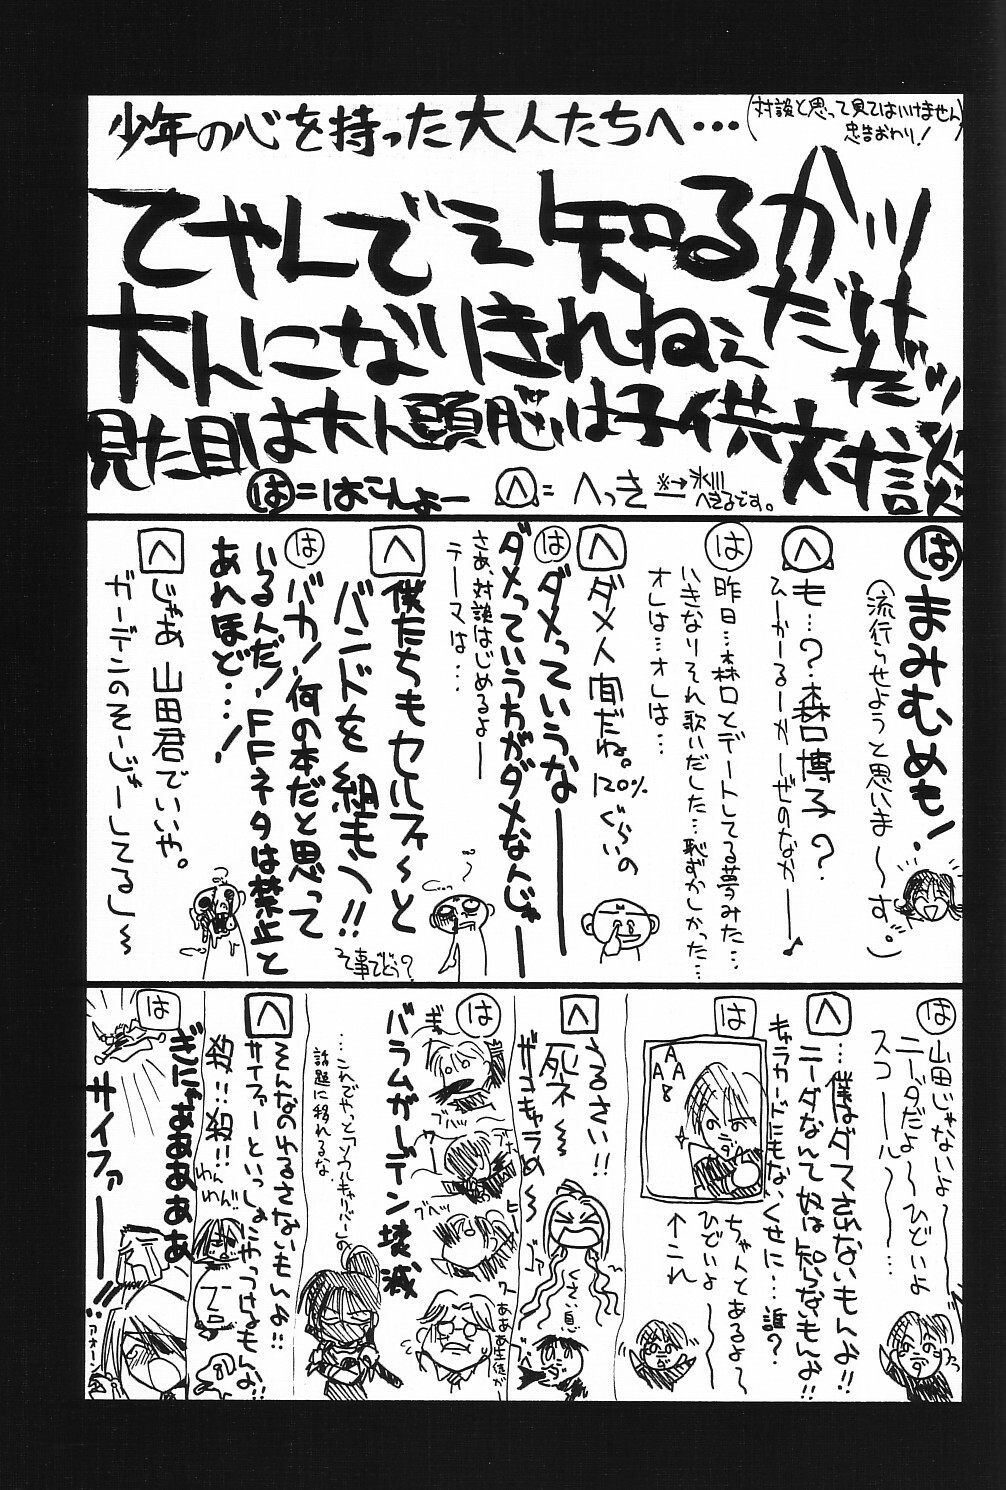 少年の心を持った大人たちへ・・・
(対談と思って見てはいけません
忠告おわり!)
てやんでぇ知るかッ
大人になりきれねぇ
だけだッ
見た目は大人頭脳は子供対談
は=はこんよー
へ=へっき
※→氷川
へきるです。
は まみむめも!
(流行らせようと思いま〜す。)
へ も…?森口博子?
ひーかーるーかーぜのなかー♪
は 昨日…森口とデートしてる夢みた…
いきなりそれ歌いだした…恥ずかしかった…
オレは…オレは…
へ ダメ人間だね。120%ぐらいの
は ダメっていうなーー
ダメっていう方がダメなんじゃーー
さあ、対談はじめるよー
テーマは…
へ 僕たちもセルフィ〜と
バンドを組もう!!
て事でどう?
は バカ!何の本だと思って
いるんだ!FFネタは禁止と
あれほど…!
へ じゃあ山田君でいいや。
ガーデンのそーじゃーしてるし〜
は 山田じゃないよ〜
ニーダだよ〜ひどいよ
スコール〜…
へ …僕はダマされないもんよ!!
ニーダなんて奴は知らないもんよ!!
キャラカードにもないくせに…誰?
は
A
A A
8
↑これ
ちゃんとあるよ〜
ひどいよ〜
へ うるさい!!
死ネ〜
ザコキャラめ〜
くさい息
は バラムガーデン壊滅
ぎゃー
ブヘッ
わーあああ生徒が
…これでやっとソウルキャリバーの
話題に移れるな
へ そんなのゆるさないもんよ!!
サイファーといっしょにやっつけるもんよ!!
殺!!殺!!
わんわん
は ぎにゃぁぁぁぁぁ
サイファーーー!!
アオーン